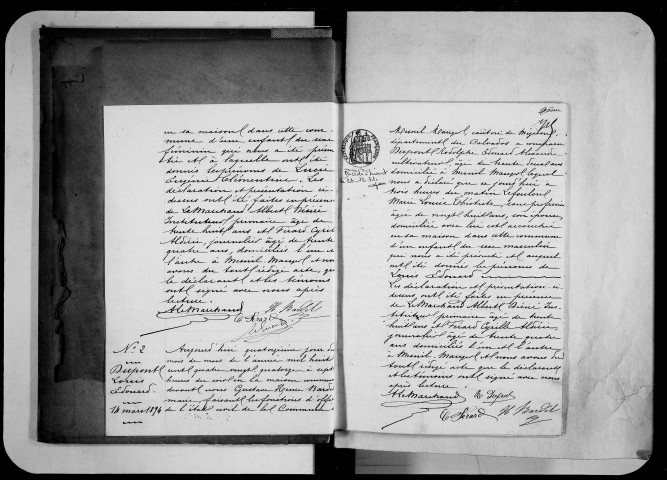 en sa maison dans cette com-
mune d'une enfant du sexe
féminin qui nous a été présen-
tée et à laquelle ont été
donnés les prénoms de Lucie
Eugénie Clémentine. Les
déclaration et présentation ci-
dessus ont été faites en présence
de Le Marchand Albert Désiré
Instituteur primaire âgé de
trente huit ans et Férard Cyrille
Aldéric, journalier âgé de trente
quatre ans, domiciliés l'un et
l'autre à Mesnil Mauger et nous
avons du tout rédigé acte, que
le déclarant et les témoins
ont signé avec nous après
lecture.
A Le Marchand H Bardel
C Férard
N° 2
Dupont
Louis
Edouard
14 mars 1894
Aujourd'hui quatorzième jour du
mois de mars de l'année mil huit
cent quatre vingt quatorze à sept
heures du soir en la maison commune
devant nous Gustave Henri Bardel
maire, faisant les fonctions d'officier
de l'état civil de la Commune
Mesnil Mauger, canton de Mézidon,
département du Calvados a comparu
Dupont Edouard
cultivateur, âgé de trente deux ans
domicilié à Mesnil Mauger, lequel
nous a déclaré que ce jourd'hui à
trois heures du matin
Marie Louise, sans profession
âgée de vingt huit ans, son épouse,
domiciliée avec lui est accouchée
en sa maison dans cette commune
d'un enfant du sexe masculin
qui nous a été présenté et auquel
ont été donnés les prénoms de
Louis Edouard
Les déclaration et présentation ci-
dessus, ont été faites en présence
de Le Marchand Albert Désiré Ins-
tituteur primaire âgé de trente
huit ans et Férard Cyrille Aldéric,
journalier âgé de trente quatre
ans domiciliés l'un et l'autre
à Mesnil Mauger et nous avons du
tout rédigé acte que le déclarant
et les témoins ont signé avec nous
après lecture.
A Le Marchand E Dupont
C Férard H Bardel